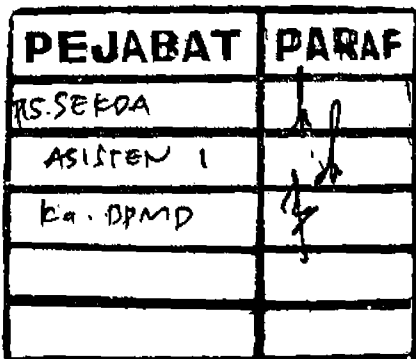 PEJABAT PARAF
PJS. SEKDA
ASISTEN 1
Ka. DPMD